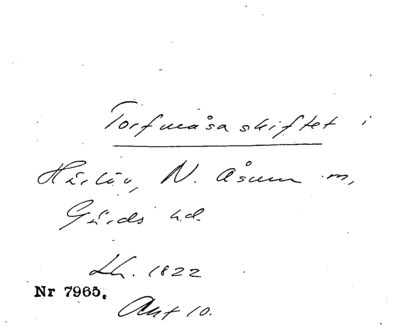 Torfmåsa skiftet i
Härlöv, N. Åsum m,
Gärds hd.
Lh. 1822
Nr 7965.
Akt 10.